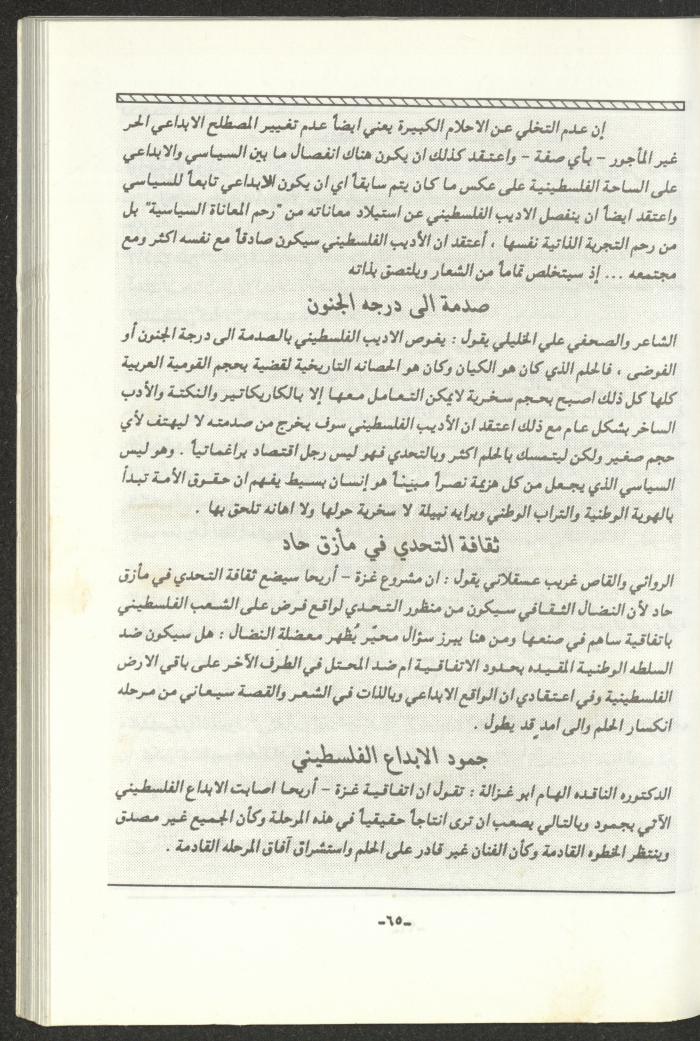 إن عدم التخلي عن الاحلام الكبيرة يعني ايضاً عدم تغيير المصطلح الابداعي الحر
غير المأجور - بأي صفة - واعتقد كذلك ان يكون هناك انفصال ما بين السياسي والابداعي
على الساحة الفلسطينية على عكس ما كان يتم سابقاً اي ان يكون الابداعي تابعاً للسياسي
واعتقد ايضاً ان ينفصل الاديب الفلسطيني عن استيلاد معاناته من "رحم المعاناة السياسية" بل
من رحم التجربة الذاتية نفسها ، أعتقد ان الأديب الفلسطيني سيكون صادقاً مع نفسه اكثر ومع
مجتمعه ... إذ سيتخلص تماماً من الشعار ويلتصق بذاته
صدمة الى درجه الجنون
الشاعر والصحفي علي الخليلي يقول : يغوص الاديب الفلسطيني بالصدمة الى درجة الجنون أو
الفوضى ، فالحلم الذي كان هو الكيان وكان هو الحصانه التاريخية لقضية بحجم القومية العربية
كلها كل ذلك اصبح بحجم سخرية لايمكن التعامل معها إلا بالكاريكاتير والنكتة والأدب
الساخر بشكل عام مع ذلك اعتقد ان الأديب الفلسطيني سوف يخرج من صدمته لا ليهتف لأي
حجم صغير ولكن ليتمسك بالحلم اكثر وبالتحدي فهو ليس رجل اقتصاد براغماتياً . وهو ليس
السياسي الذي يجعل من كل هزيمة نصراً مبيناً هو إنسان بسيط يفهم ان حقوق الأمة تبدأ
بالهوية الوطنية والتراب الوطني وبرايه نبيلة لا سخرية حولها ولا اهانه تلحق بها .
ثقافة التحدي في مأزق حاد
الروائي والقاص غريب عسقلاني يقول : ان مشروع غزة - أريحا سيضع ثقافة التحدي في مأزق
حاد لأن النضال الثقافي سيكون من منظور التحدي لواقع فرض على الشعب الفلسطيني
باتفاقية ساهم في صنعها ومن هنا يبرز سؤال محيّر يُظهر معضلة النضال : هل سيكون ضد
السلطه الوطنية المقيده بحدود الاتفاقية ام ضد المحتل في الطرف الآخر على باقي الارض
الفلسطينية وفي اعتقادي ان الواقع الابداعي وبالذات في الشعر والقصة سيعاني من مرحله
انكسار الحلم والى امدٍ قد يطول .
جمود الابداع الفلسطيني
الدكتوره الناقده الهام ابو غزالة : تقول ان اتفاقية غزة - أريحا اصابت الابداع الفلسطيني
الآتي بجمود وبالتالي يصعب ان ترى انتاجاً حقيقياً في هذه المرحلة وكأن الجميع غير مصدق
وينتظر الخطوه القادمة وكأن الفنان غير قادر على الحلم واستشراق آفاق المرحله القادمة .
-٦٥-